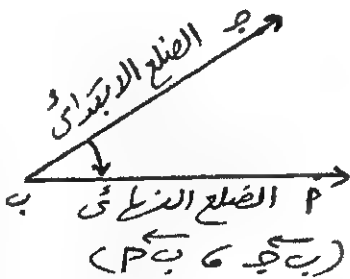 جـ
الضلع الابتدائى
ب الضلع النهائى م
(ب جـ ، ب م)